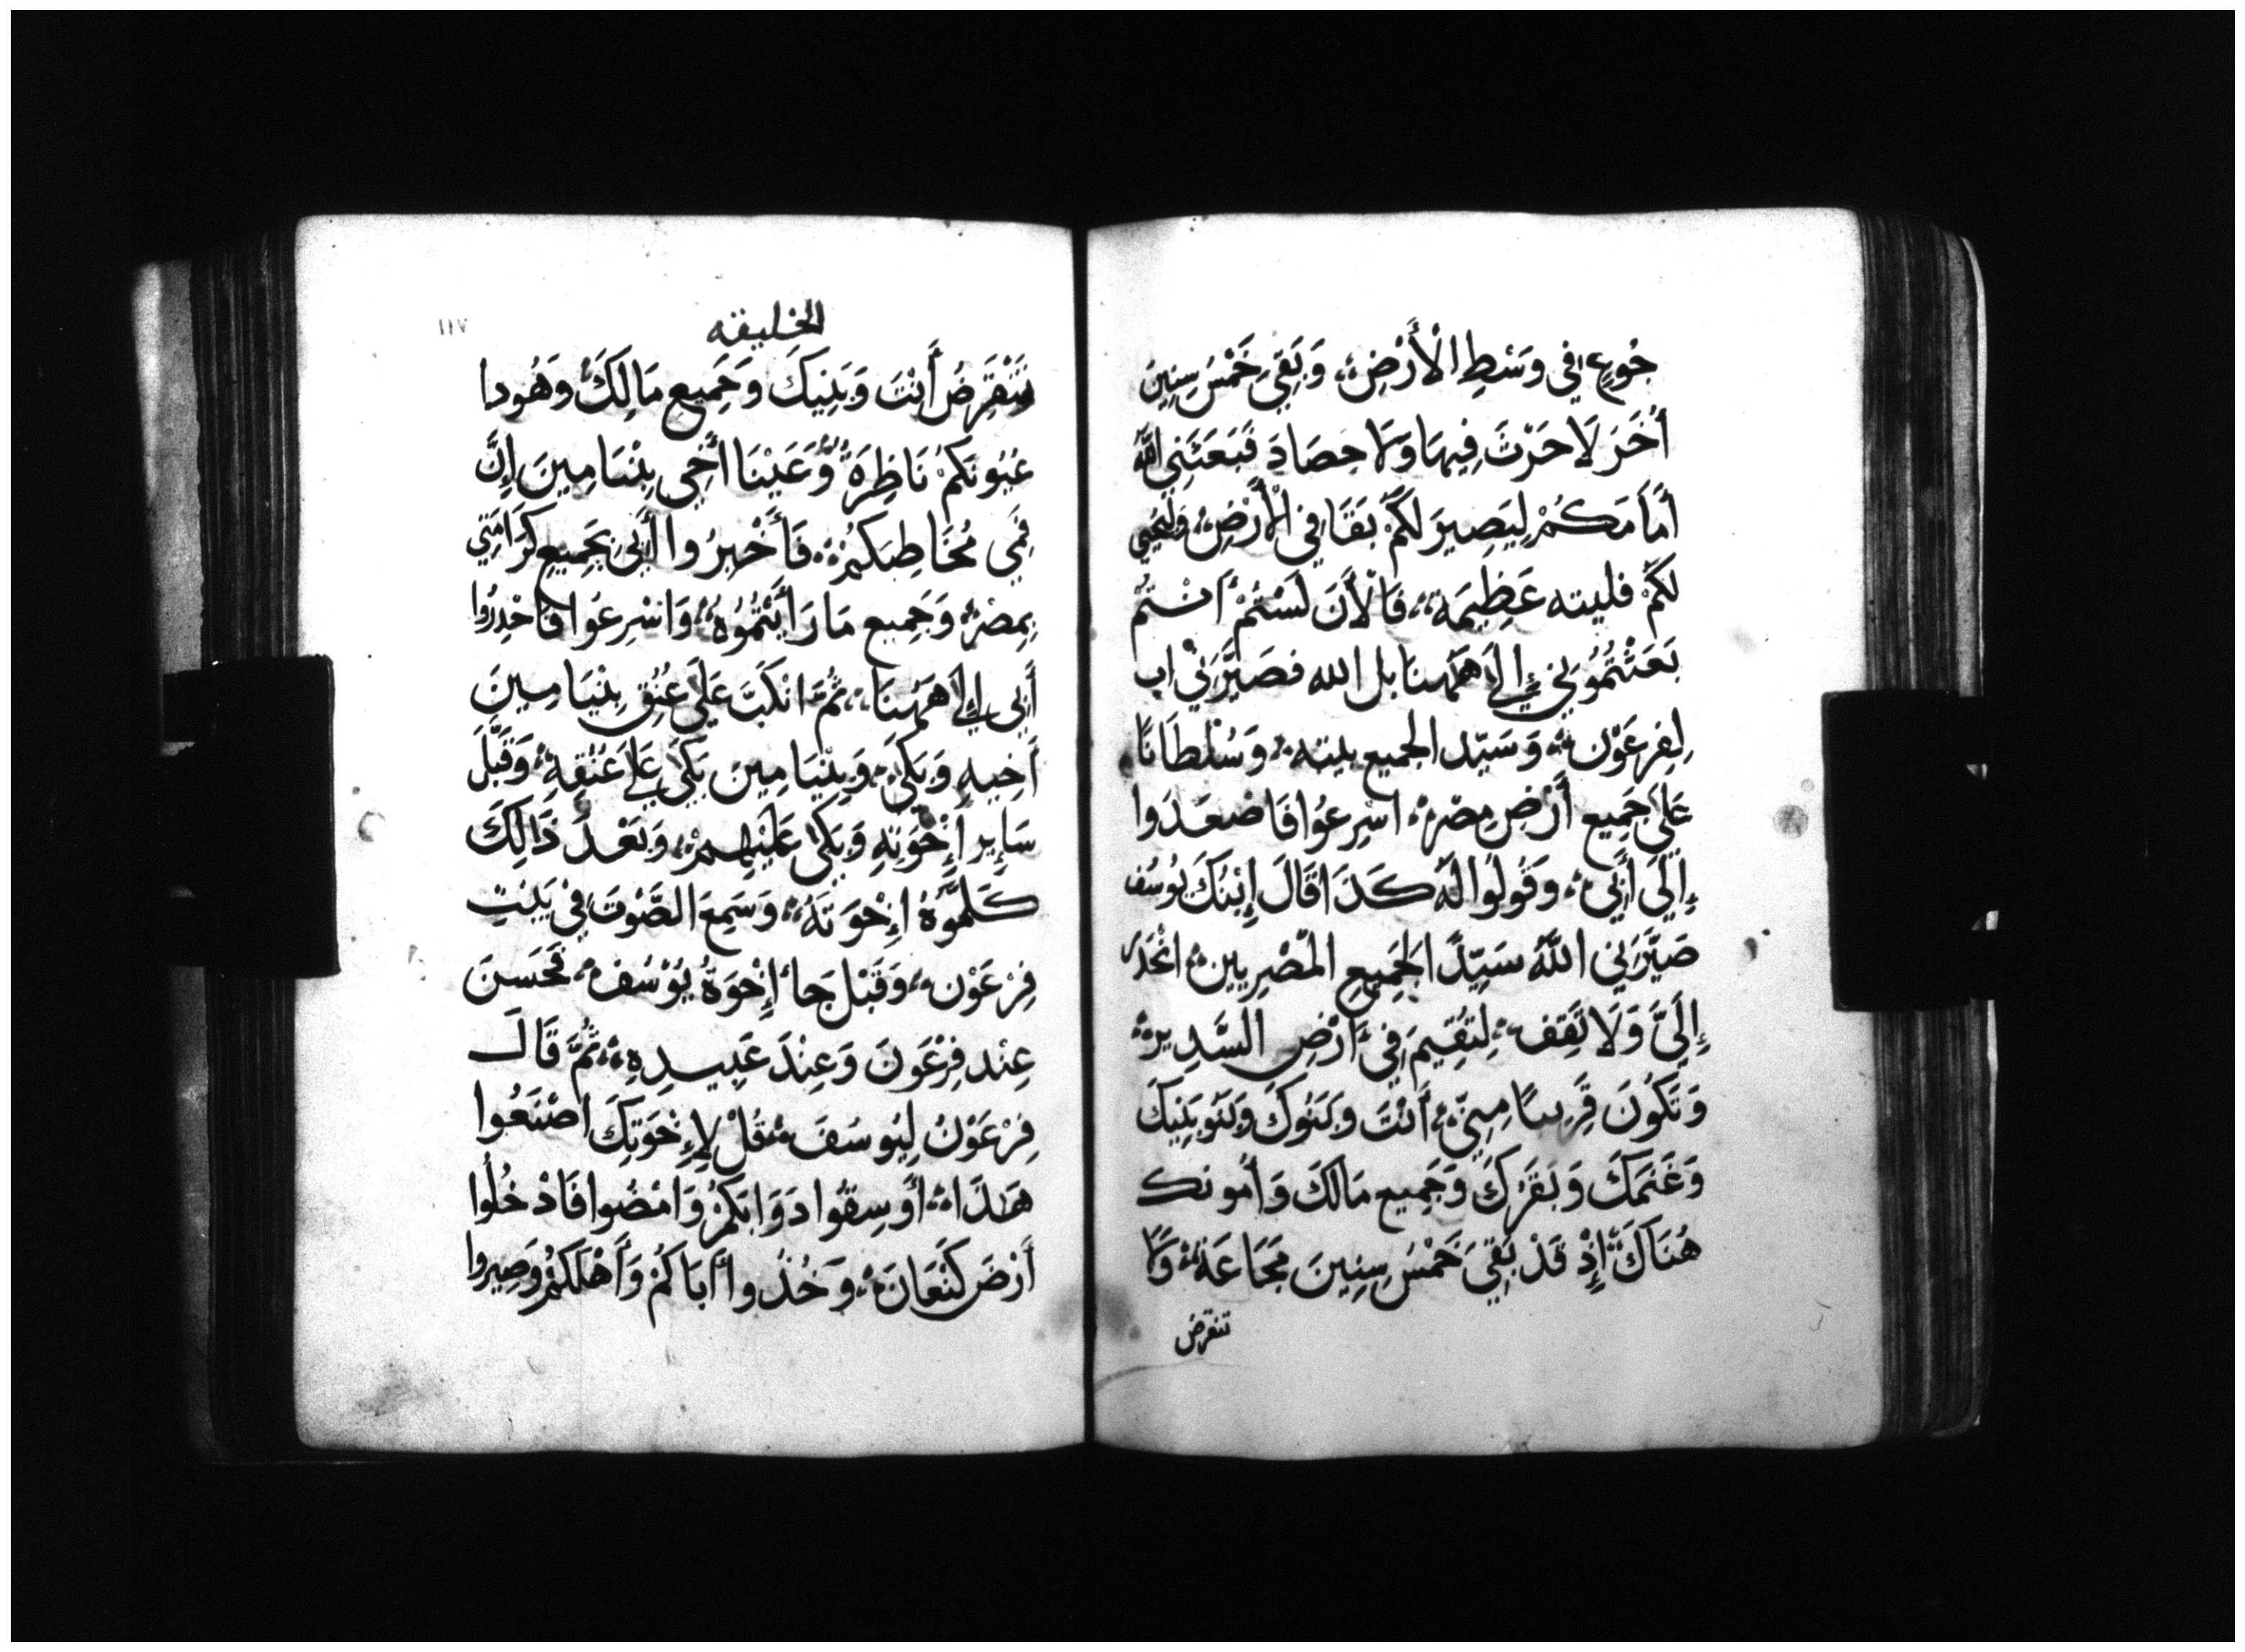 جُوعٍ فِي وَسْطِ الْأَرْضِ، وَبَقِيَ خَمْسُ سِنِينَ
أُخَرَ لَا حَرْثَ فِيهَا وَلَا حِصَادَ فَبَعَثَنِي اللَّهُ
أَمَامَكُمْ لِيَصِيرَ لَكُمْ بَقَا فِي الْأَرْضِ، وَلِنُحْيِي
لَكُمْ فليته عَظِيمَة، فَالْأَنَ لَسْتُمْ أَنْتُمْ
بَعَثْتُمُونِي إِلَى هَهُنَا بل الله فصَيَّرَنِي اب
لِفِرعَوْن، وَسَيّد الجميع بيته، وَسُلْطَانًا
عَلَى جَمِيع أَرْضِ مِصْرَ، اسْرِعُوا فَاصْعَدُوا
إِلَى أَبِي، وَقُولُوا لَهُ كَذَا قَالَ إِبْنُكَ يُوسُف
صَيَّرَنِي اللَّهُ سَيِّدًا لِجَمِيعِ الْمصْرِيين، انْحَدِر
إِلَيَّ وَلَا تَقِف، لِتُقِيمَ فِي أَرْضِ السَّدِير،
وَتَكُونَ قَرِيبًا مِنِّي، أَنْتَ وَبَنُوكَ وَبَنُو بَنِيكَ
وَغَنَمَكَ وَبَقَرَكَ وَجَمِيع مَالَكَ وَأَمُونك
هُنَاكَ، إِذْ قَدْ بَقِيَ خَمْسُ سِنِينَ مَجَاعَة، وَلَا
تنقرض
الخليقه
١١٧
تَنْقَرِضُ أَنْتَ وَبَنِيكَ وَجَمِيع مَالِكَ، وَهُودا
عُيُونَكُمْ نَاظِرَة، وَعَيْنَا أَخِي بِنْيَامِينَ إِنَّ
فَمِي مُخَاطِبَكُمْ، فَأَخْبِرُوا أَبِي بِجَمِيعِ كَرَامَتِي
بِمِصْرَ، وَجَمِيع مَا رَأَيْتُمُوهُ، وَاسْرِعُوا فَاحْدِرُوا
أَبِي إِلَى هَهُنَا، ثُمَّ انْكَبَّ عَلَى عُنُقِ بِنْيَامِينَ
أَخِيهِ وَبَكَى، وَبِنْيَامِينَ بَكَى عَلَى عُنُقِهِ، وَقَبَّلَ
سَايِر إِخْوَتِهِ وَبَكَى عَلَيْهِمْ، وَبَعْدَ ذَالِكَ
كَلَّمُوهُ إِخْوَتَهُ، وَسَمِعَ الصَّوْتَ فِي بَيْتِ
فِرْعَوْن، وَقَبْل جَا إِخْوَةُ يُوْسُف، فَحَسَنَ
عِنْد فِرْعَوْنَ وَعِنْدَ عَبِيدِهِ، ثُمَّ قَالَ
فِرْعَوْنُ لِيُوسُفَ، قُلْ لِإِخْوَتِكَ اصْنَعُوا
هَذَا، أَوسِقُوا دَوَابَكُمْ وَامْضُوا فَادْخُلُوا
أَرْضَ كَنْعَانَ، وَخُذُوا أَبَاكُمْ وَأَهْلَكُمْ وَصِيرُوا